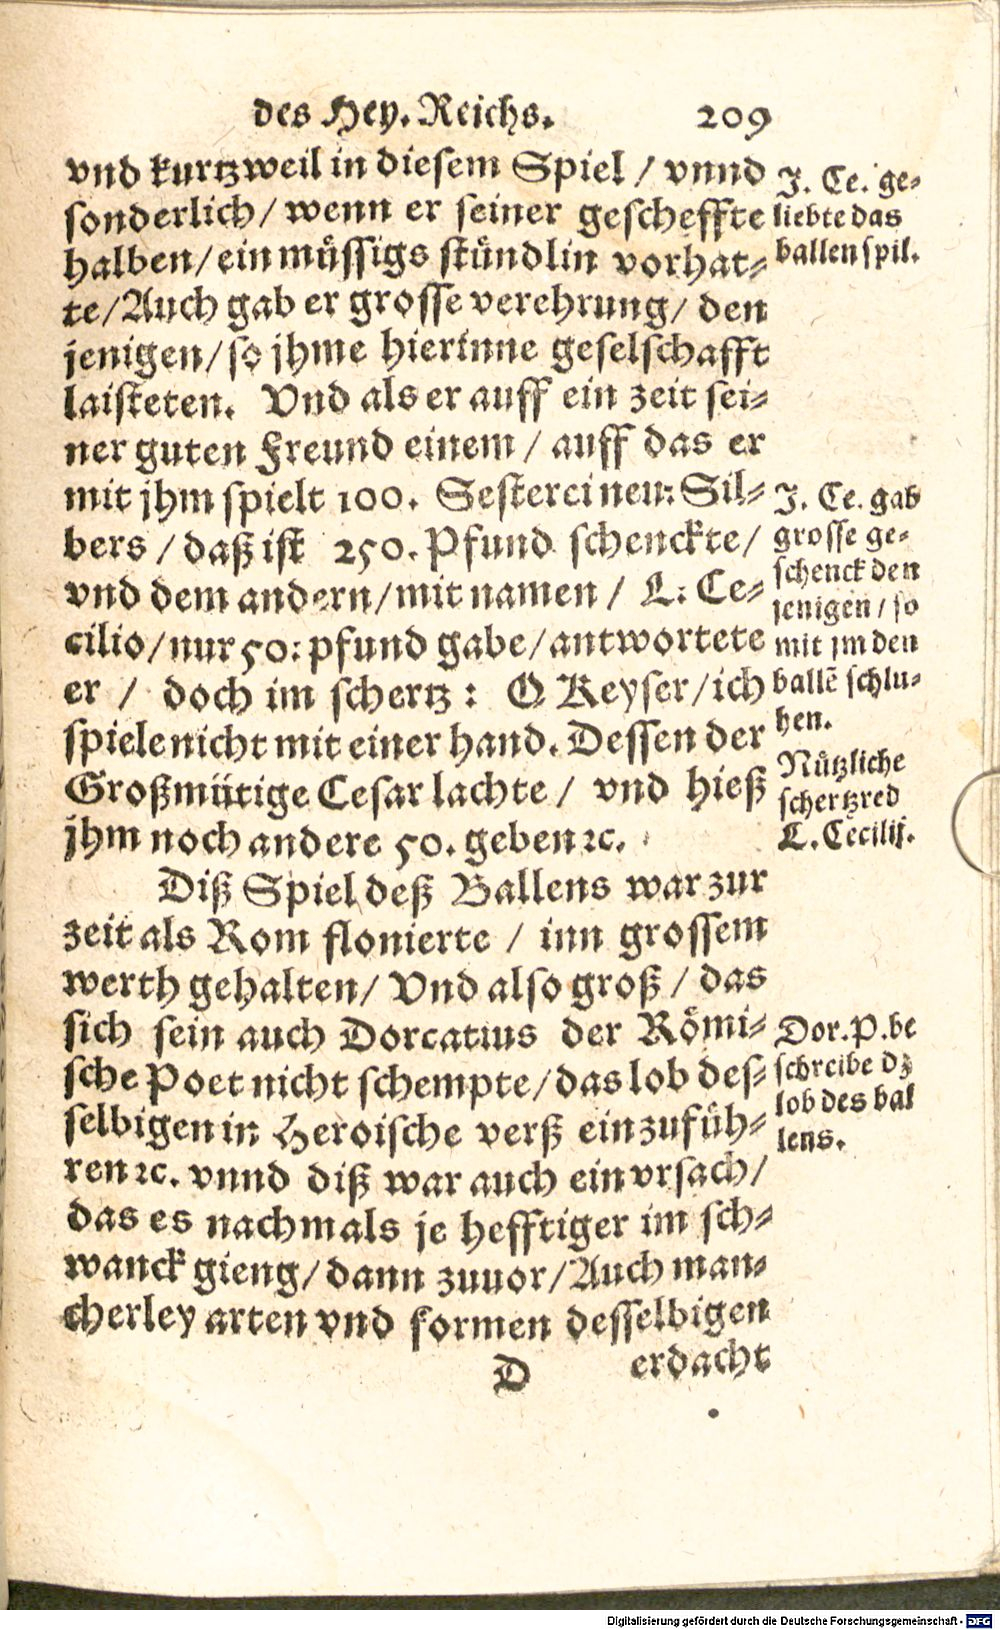 des Hey. Reichs. 209
vnd kurtzweil in diesem Spiel / vnnd
sonderlich / wenn er seiner gescheffte
halben / ein müssigs stündlin vorhat-
te / Auch gab er grosse verehrung / den
jenigen / so jhme hierinne geselschafft
laisteten. Vnd als er auff ein zeit sei-
ner guten Freund einem / auff das er
mit jhm spielt 100. Sestercinen: Sil-
bers / daß ist 250. Pfund schenckte /
vnd dem andern / mit namen / L. Ce-
cilio / nur 50: pfund gabe / antwortete
er / doch im schertz: O Keyser / ich
spiele nicht mit einer hand. Dessen der
Großmütige Cesar lachte / vnd hieß
jhm noch andere 50. geben ꝛc.
Diß Spiel deß Ballens war zur
zeit als Rom flonierte / inn grossem
werth gehalten / Vnd also groß / das
sich sein auch Dorcatius der Römi-
sche Poet nicht schempte / das lob des-
selbigen in Heroische verß einzufüh-
ren ꝛc. vnnd diß war auch ein vrsach /
das es nachmals je hefftiger im sch-
wanck gieng / dann zuuor / Auch man-
cherley arten vnd formen desselbigen
D erdacht
J. Ce. ge-
liebte das
ballenspil.
J. Ce. gab
grosse ge-
schenck den
jenigen / so
mit jm den
ballẽ schlu-
hen.
Nützliche
schertzred
L. Cecilij.
Dor. P. be
schreibe dz
lob des bal
lens.
Digitalisierung gefördert durch die Deutsche Forschungsgemeinschaft - DFG